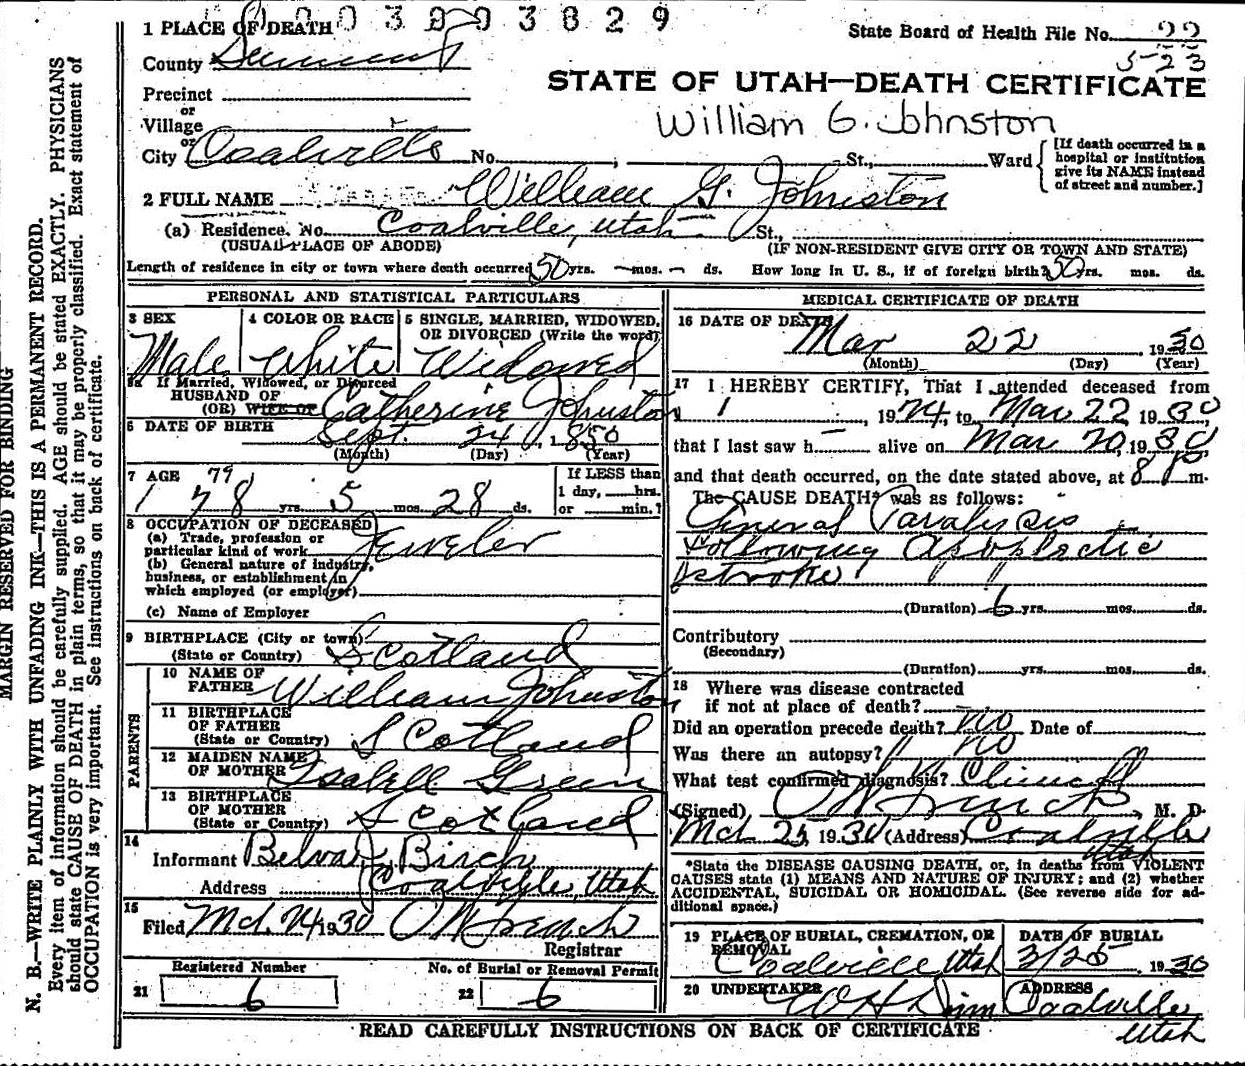 0003093829
1 PLACE OF DEATH
State Board of Health File No. 22
5-23
County Summit
STATE OF UTAH—DEATH CERTIFICATE
Precinct
or
Village
William G. Johnston
or
City Coalville No. ; St., Ward
[If death occurred in a
hospital or institution
give its NAME instead
of street and number.]
2 FULL NAME William G. Johnston
(a) Residence. No. Coalville, Utah St.,
(USUAL PLACE OF ABODE) (IF NON-RESIDENT GIVE CITY OR TOWN AND STATE)
Length of residence in city or town where death occurred 50 yrs. — mos. — ds. How long in U. S., if of foreign birth? 50 yrs. mos. ds.
PERSONAL AND STATISTICAL PARTICULARS
3 SEX
Male
4 COLOR OR RACE
White
5 SINGLE, MARRIED, WIDOWED,
OR DIVORCED (Write the word)
Widowed
5a If Married, Widowed, or Divorced
HUSBAND OF
(OR) WIFE OF Catherine Johnston
6 DATE OF BIRTH Sept. 24, 1850
(Month) (Day) (Year)
7 AGE 79
78 yrs. 5 mos. 28 ds.
If LESS than
1 day, hrs.
or min.?
8 OCCUPATION OF DECEASED
(a) Trade, profession or
particular kind of work Jeweler
(b) General nature of industry,
business, or establishment in
which employed (or employer)
(c) Name of Employer
9 BIRTHPLACE (City or town)
(State or Country) Scotland
PARENTS
10 NAME OF
FATHER William Johnston
11 BIRTHPLACE
OF FATHER
(State or Country) Scotland
12 MAIDEN NAME
OF MOTHER Isabell Green
13 BIRTHPLACE
OF MOTHER
(State or Country) Scotland
14
Informant Belva J. Birch
Address Coalville, Utah
15
Filed Mch. 24 1930
Registrar
Registered Number
21 6
No. of Burial or Removal Permit
22 6
MEDICAL CERTIFICATE OF DEATH
16 DATE OF DEATH
Mar 22 1930
(Month) (Day) (Year)
17 I HEREBY CERTIFY, That I attended deceased from
1 , 1924, to Mar 22, 1930
that I last saw h— alive on Mar 20, 1930
and that death occurred, on the date stated above, at 8 P m.
The CAUSE DEATH* was as follows:
General Paralysis
Following Apoplectic
stroke
(Duration) 6 yrs. mos. ds.
Contributory
(Secondary)
(Duration) yrs. mos. ds.
18 Where was disease contracted
if not at place of death?
Did an operation precede death? no Date of
Was there an autopsy? no
What test confirmed diagnosis? Clinical
(Signed) , M. D.
Mch 25, 1930 (Address) Coalville
Utah
*State the DISEASE CAUSING DEATH, or, in deaths from VIOLENT
CAUSES state (1) MEANS AND NATURE OF INJURY; and (2) whether
ACCIDENTAL, SUICIDAL OR HOMICIDAL. (See reverse side for ad-
ditional space.)
19 PLACE OF BURIAL, CREMATION, OR
REMOVAL
Coalville Utah
DATE OF BURIAL
3/25, 1930
20 UNDERTAKER
ADDRESS
Coalville
Utah
READ CAREFULLY INSTRUCTIONS ON BACK OF CERTIFICATE
MARGIN RESERVED FOR BINDING
N. B.—WRITE PLAINLY WITH UNFADING INK—THIS IS A PERMANENT RECORD.
Every item of information should be carefully supplied. AGE should be stated EXACTLY. PHYSICIANS
should state CAUSE OF DEATH in plain terms, so that it may be properly classified. Exact statement of
OCCUPATION is very important. See instructions on back of certificate.